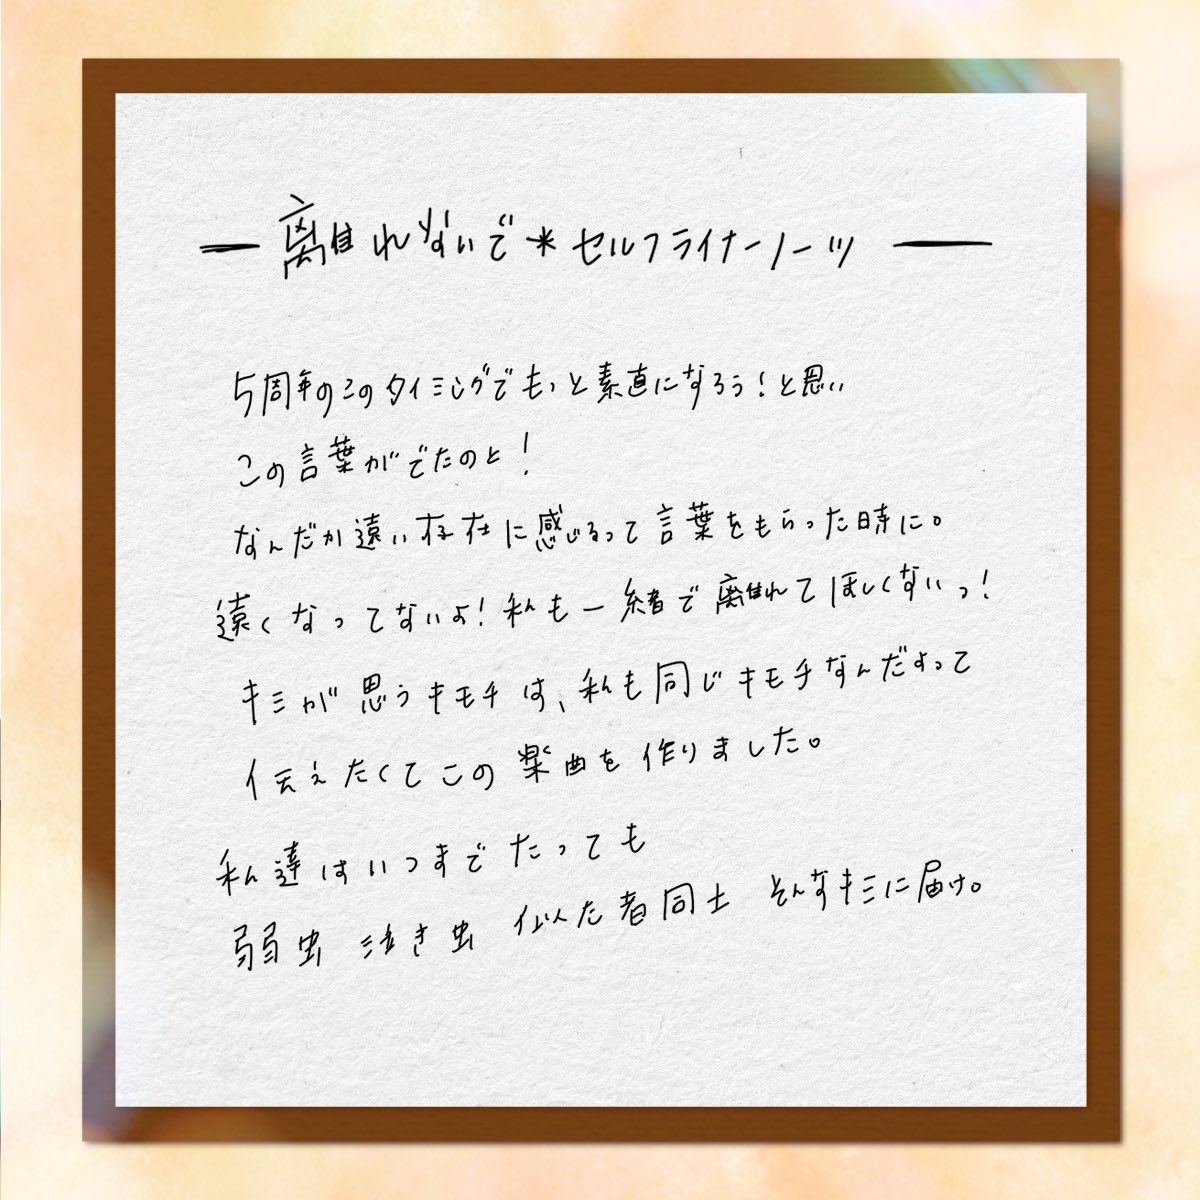 — 離れないで*セルフライナーノーツ —
5周年のこのタイミングでもっと素直になろう!と思い
この言葉がでたのと!
なんだか遠い存在に感じるって言葉をもらった時に。
遠くなってないよ!私も一緒で離れてほしくないっ!
キミが思うキモチは、私も同じキモチなんだよって
伝えたくてこの楽曲を作りました。
私達はいつまでたっても
弱虫 泣き虫 似た者同士 そんなキミに届け。